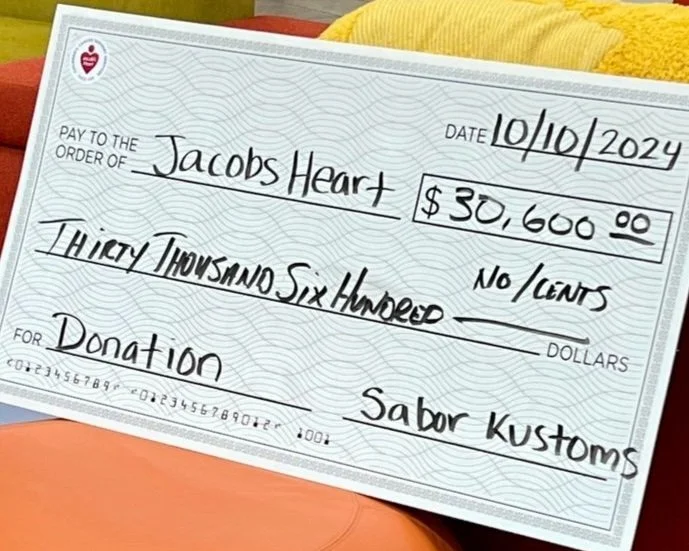 DATE 10/10/2024
PAY TO THE
ORDER OF Jacobs Heart $ 30,600 00
THIRTY THOUSAND SIX HUNDRED NO/CENTS
DOLLARS
FOR Donation
Sabor Kustoms
0123456789 0123456789012 1001